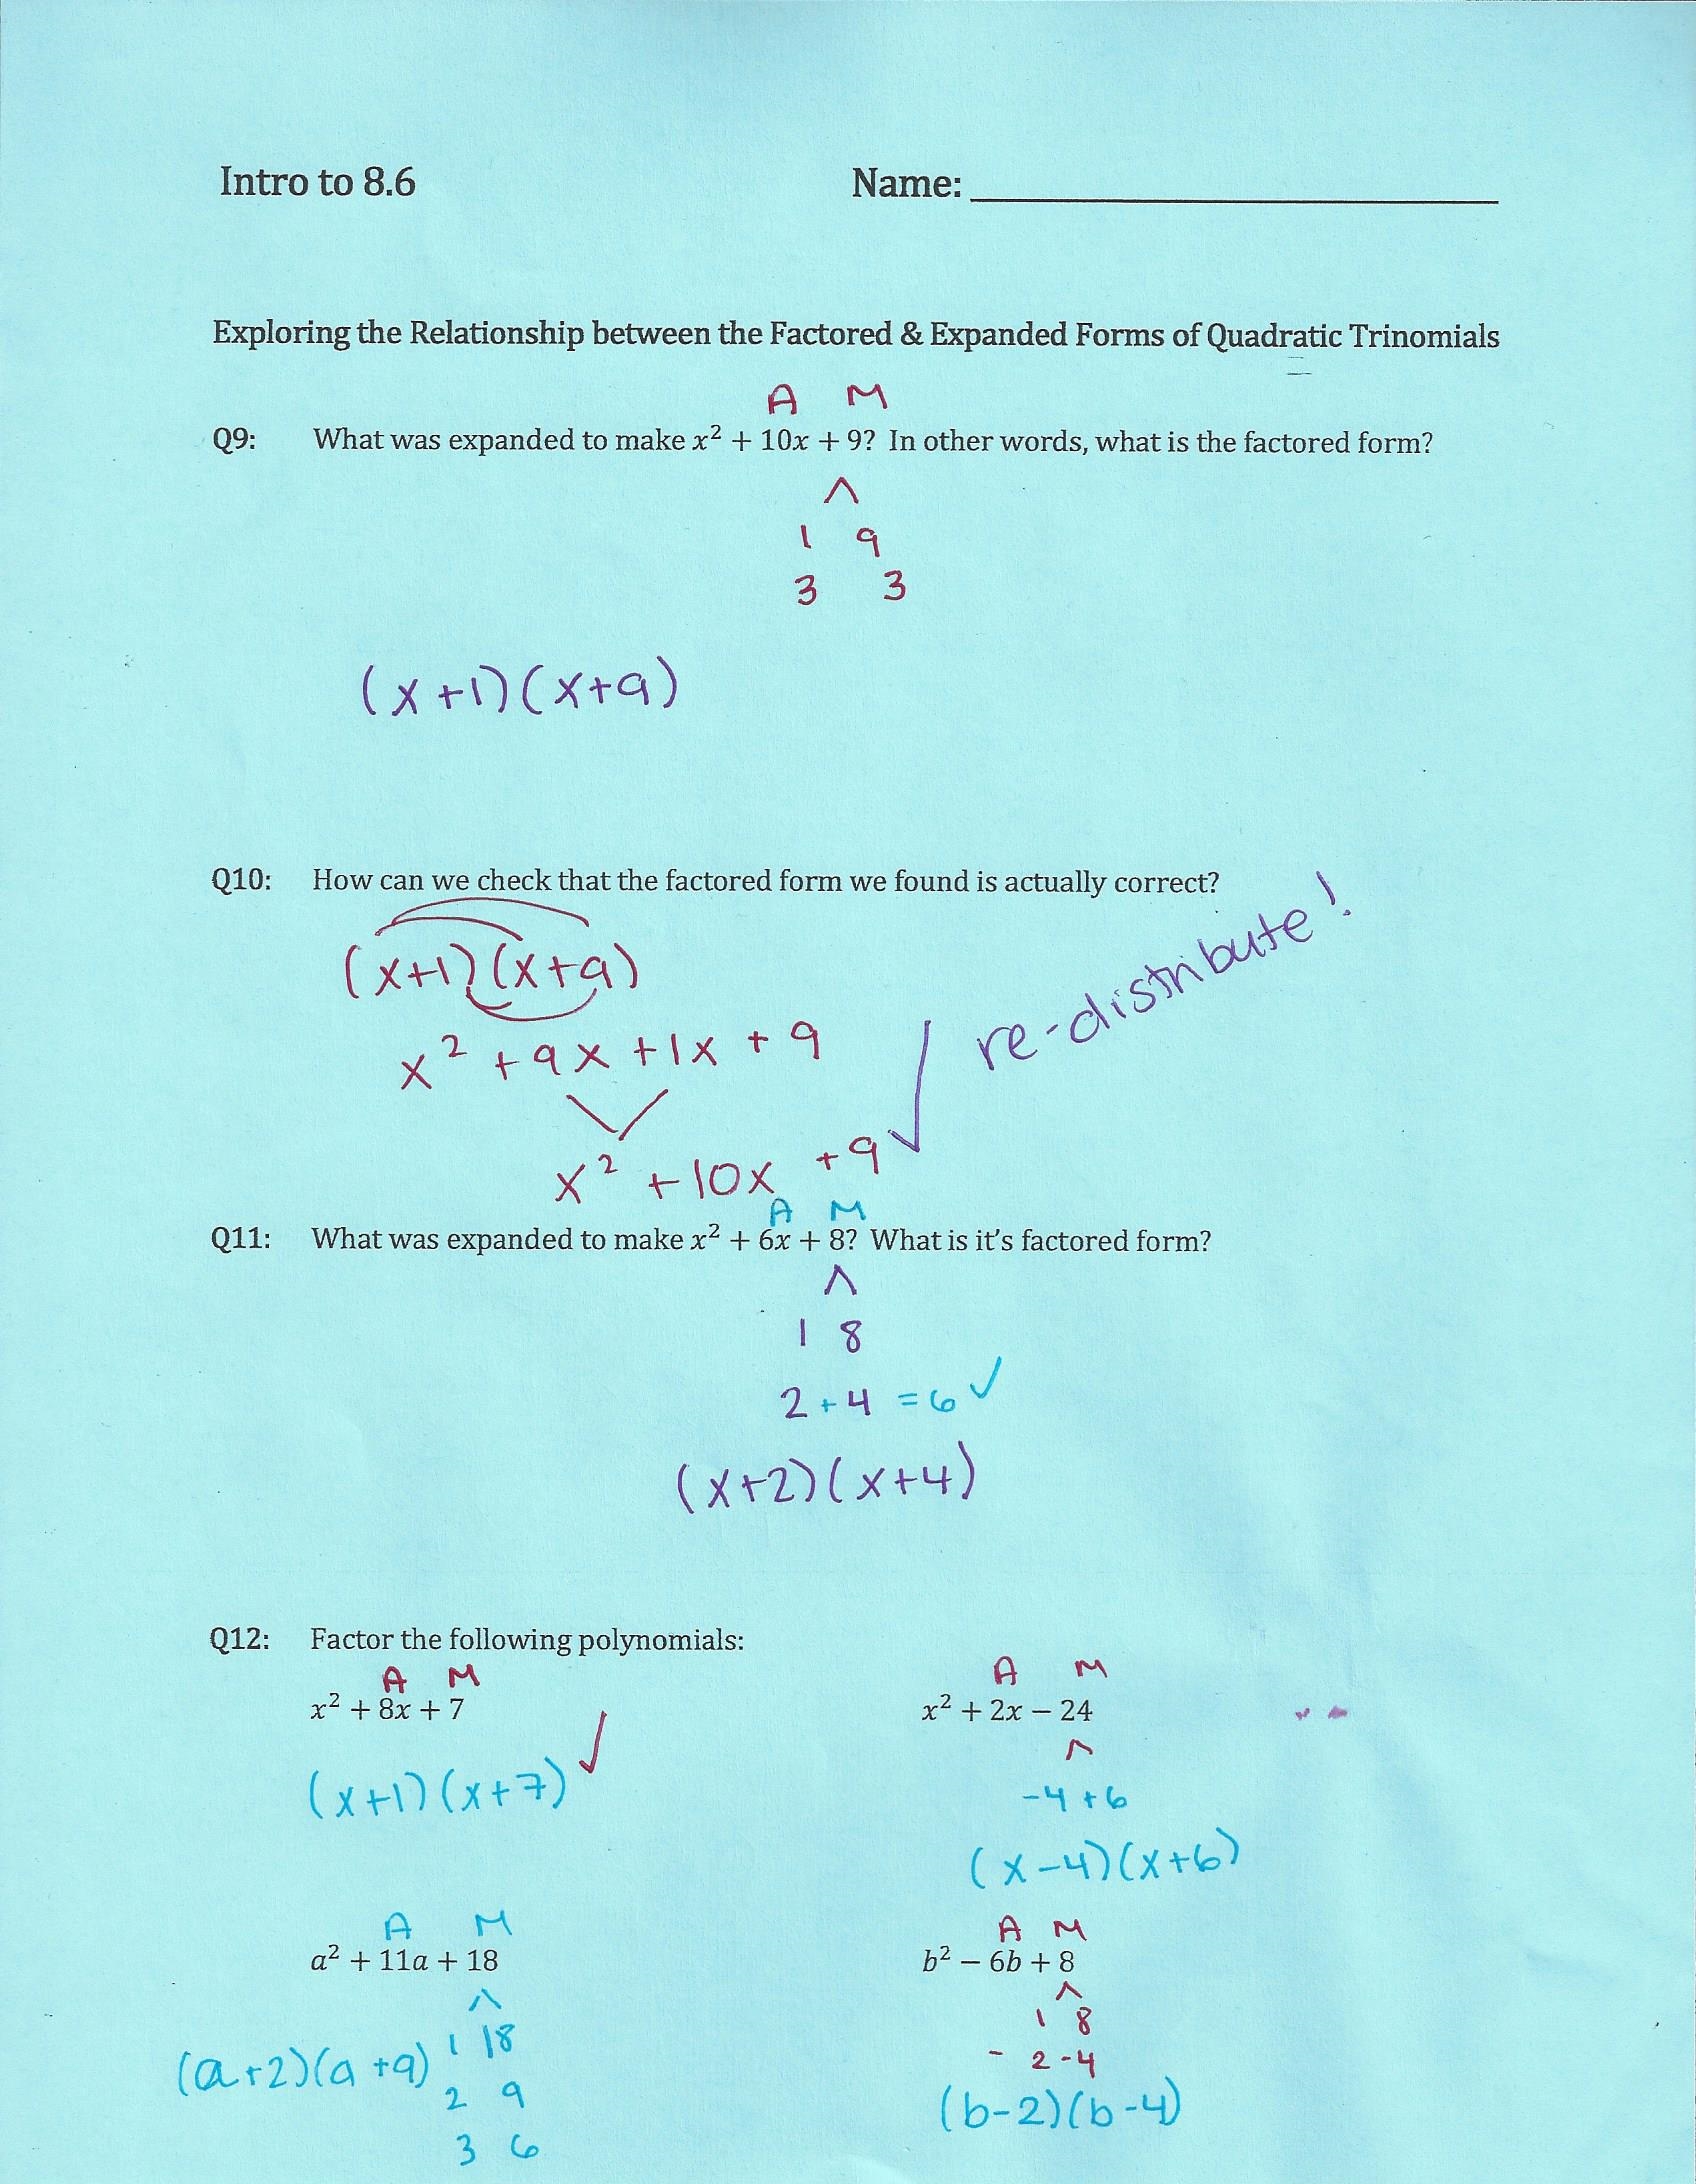 Intro to 8.6 Name:
Exploring the Relationship between the Factored & Expanded Forms of Quadratic Trinomials
A M
Q9: What was expanded to make x² + 10x + 9? In other words, what is the factored form?
1 9
3 3
(x+1)(x+9)
Q10: How can we check that the factored form we found is actually correct?
re-distribute!
(x+1)(x+9)
x² + 9x + 1x + 9
x² + 10x + 9 ✓
A M
Q11: What was expanded to make x² + 6x + 8? What is it's factored form?
1 8
2 + 4 = 6 ✓
(x+2)(x+4)
Q12: Factor the following polynomials:
A M
x² + 8x + 7
(x+1)(x+7) ✓
A M
x² + 2x − 24
-4 + 6
(x-4)(x+6)
A M
a² + 11a + 18
1 18
(a+2)(a+9)
2 9
3 6
A M
b² − 6b + 8
1 8
- 2 -4
(b-2)(b-4)